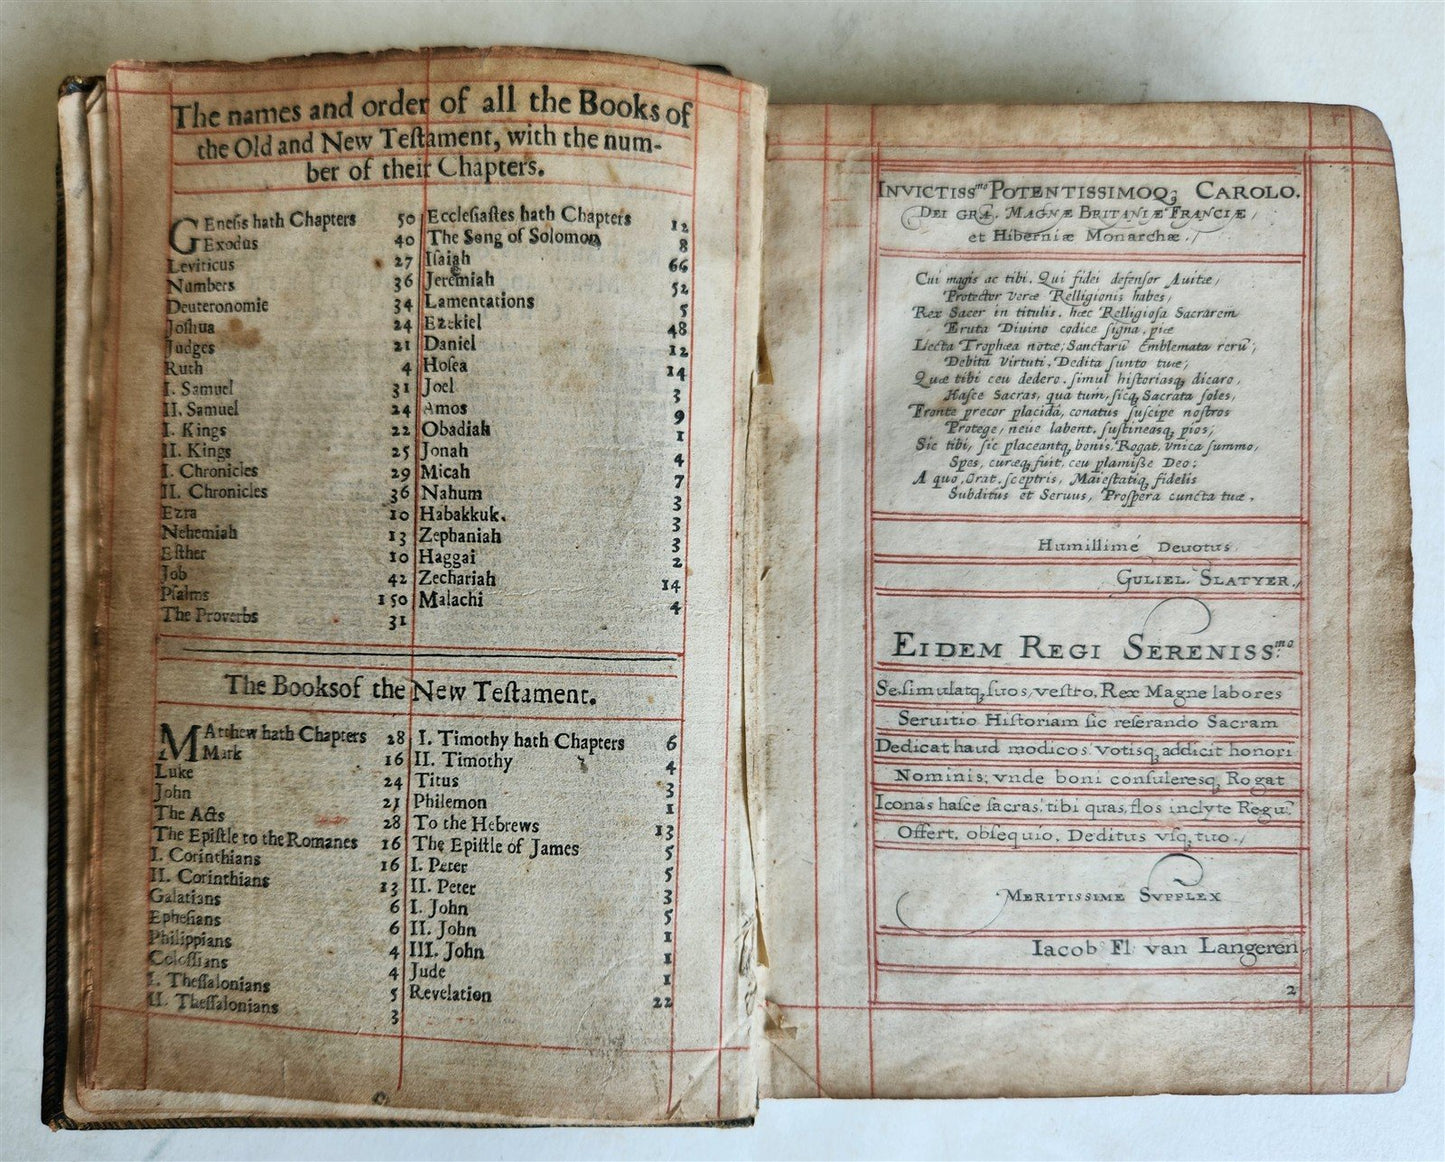 The names and order of all the Books of
the Old and New Teſtament, with the num-
ber of their Chapters.
GEneſis hath Chapters 50
Exodus 40
Leviticus 27
Numbers 36
Deuteronomie 34
Joſhua 24
Judges 21
Ruth 4
I. Samuel 31
II. Samuel 24
I. Kings 22
II. Kings 25
I. Chronicles 29
II. Chronicles 36
Ezra 10
Nehemiah 13
Eſther 10
Job 42
Pſalms 150
The Proverbs 31
Eccleſiaſtes hath Chapters 12
The Song of Solomon 8
Iſaiah 66
Jeremiah 52
Lamentations 5
Ezekiel 48
Daniel 12
Hoſea 14
Joel 3
Amos 9
Obadiah 1
Jonah 4
Micah 7
Nahum 3
Habakkuk. 3
Zephaniah 3
Haggai 2
Zechariah 14
Malachi 4
The Books of the New Teſtament.
MAtthew hath Chapters 28
Mark 16
Luke 24
John 21
The Acts 28
The Epiſtle to the Romanes 16
I. Corinthians 16
II. Corinthians 13
Galatians 6
Epheſians 6
Philippians 4
Coloſſians 4
I. Theſſalonians 5
II. Theſſalonians 3
I. Timothy hath Chapters 6
II. Timothy 4
Titus 3
Philemon 1
To the Hebrews 13
The Epiſtle of James 5
I. Peter 5
II. Peter 3
I. John 5
II. John 1
III. John 1
Jude 1
Revelation 22
INVICTISSmo POTENTISSIMOQꝫ CAROLO.
DEI GRÆ. MAGNÆ BRITANIÆ FRANCIÆ,
et Hiberniæ Monarchæ.,
Cui magis ac tibi. Qui fidei defenſor Auitæ,
Protector veræ Relligionis habes,
Rex Sacer in titulis. hæc Relligioſa Sacrarem
Eruta Diuino codice ſigna. piæ
Lecta Trophæa notæ; Sanctarū Emblemata rerū,
Debita virtuti. Dedita ſunto tuæ;
Quæ tibi ceu dedero. ſimul hiſtoriasqꝫ dicaro,
Haſce Sacras, qua tum, ſicqꝫ Sacrata ſoles,
Fronte precor placidâ, conatus ſuſcipe noſtros
Protege, neue labent. ſuſtineasqꝫ pios;
Sic tibi, ſic placeantqꝫ bonis. Rogat. vnica ſummo,
Spes, curæqꝫ fuit. ceu plamiſſe Deo;
A quo, Orat. ſceptris, Maieſtatiqꝫ fidelis
Subditus et Seruus, Proſpera cuncta tuæ.
Humillimé Deuotus
GULIEL. SLATYER.,
EIDEM REGI SERENISSmo
Se.ſimulatqꝫ ſuos, veſtro, Rex Magne labores
Seruitio Hiſtoriam ſic reſerando Sacram
Dedicat haud modicos votisqꝫ addicit honori
Nominis; vnde boni conſuleresqꝫ Rogat
Iconas haſce ſacras. tibi quas, flos inclyte Regū
Offert. obſequio. Deditus vſqꝫ tuo.,
MERITISSIME SVPPLEX
Iacob Fl. van Langeren
2